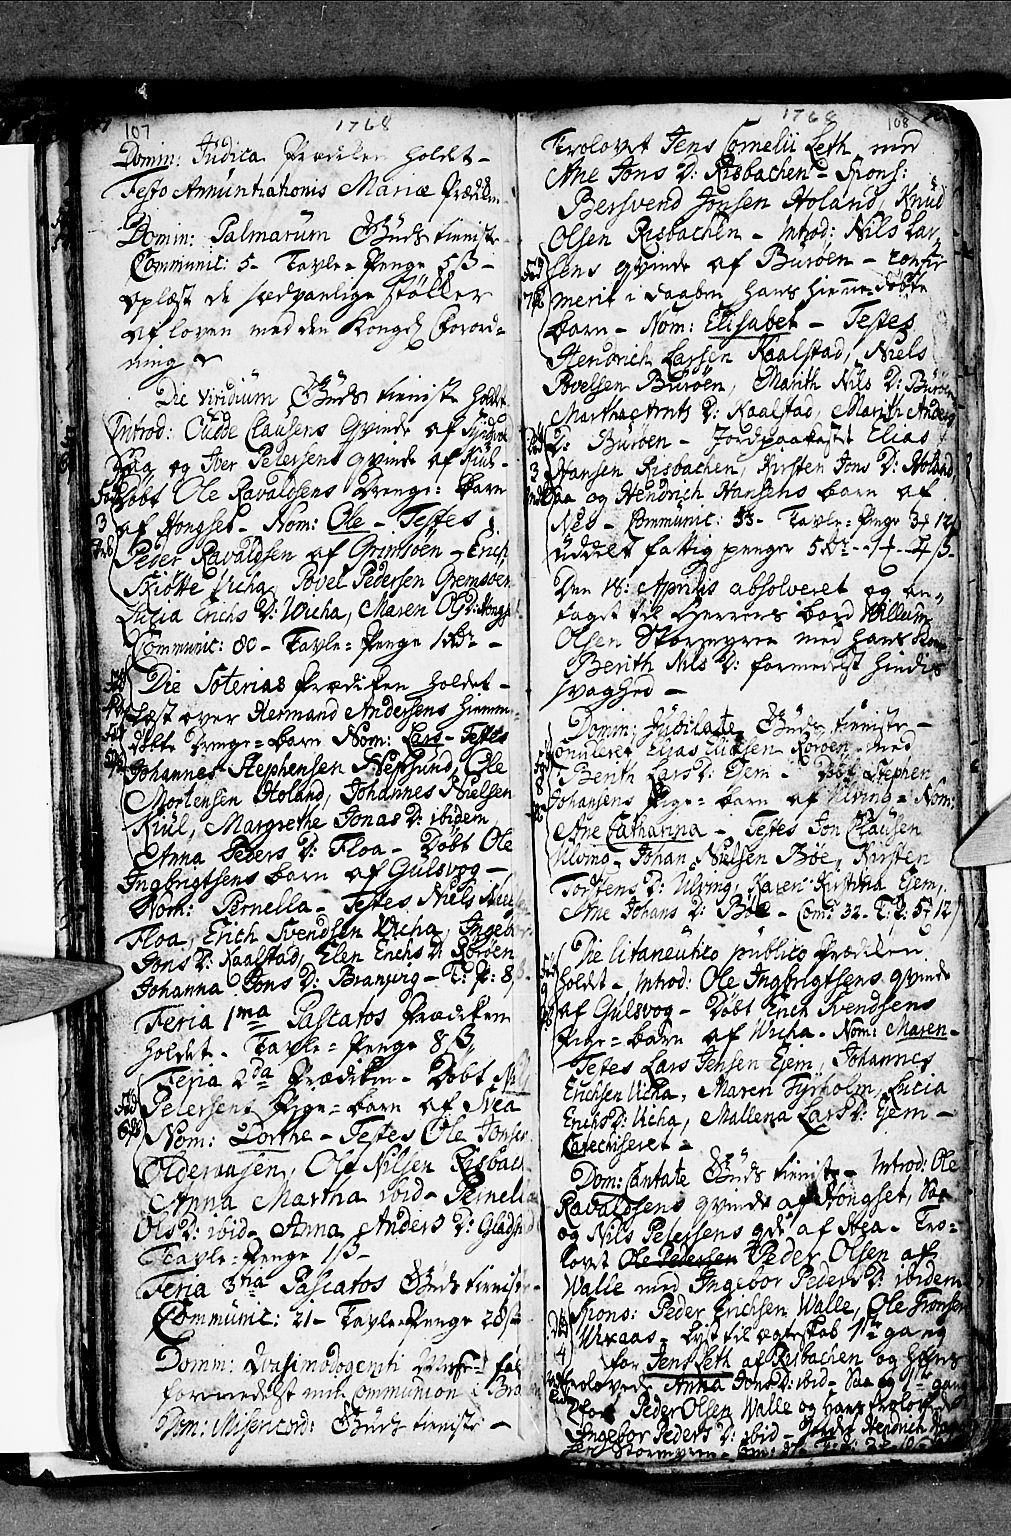 107
1768
Domin: Judica Prædiken holdt -
Festo Annuntiationis Mariæ Prædiken
Domin: Palmarum Guds tieniste
Communic: 5 - Tavle-Penge 5 ß -
oplæst de sædvanlige støkker
af loven med den Kongel. Forord-
ning
Die viridium Guds tieniste holdt
Introd: Clausens Qvinde af
og Iver Petersens qvinde af Kiul -
døbt Ole Ravaldsens Drenge-barn
af Hongset - Nom: Ole - Testes
Peder Ravaldsen af Gremsøen - Erich
Skiøtte Vicha, Povel Pedersen Gremsøen
Lucia Erichs D: Vicha, Maren
Communic: 80 - Tavle-Penge
Die Soterias Prædiken holdet -
Læst over Hermand Andersens hiemme-
døbte Drenge-barn Nom: Lars - Testes
Johannes Stephensen Nepsund, Ole
Mortensen Holand, Johannes Nielsen
Kiul, Margrethe Jonas D: ibidem
Anna Peders D: Floa - Døbt Ole
Ingbrigtsens barn af Gulsvog -
Nom: Pernella - Testes Niels
Floa, Erich Svendsen Vicha, Ingebor
Jons D: Kaalstad, Elen Erichs D: Korøen
Johanna Jons D: Branurg - T: P: 8
Feria 1ma Pascatos Prædiken
holdet - Tavle-Penge 8 ß
Feria 2da Prædiken - Døbt
Petersens Pige-barn af Nea
Nom: Dorthe - Testes Ole Jonsen
Olderaasen, Ole Nilsen Risbach
Anna Martha ibid - Pernella
Ols D: ibid - Anna Anders D:
Tavle-Penge 1 ß -
Feria 3tia Pascatos Guds tieniste -
Communic: 21 - Tavle-Penge 28 ß
Domin: Quasimodogeniti
formedelst min Communion i
Dom: Misericord: Guds tieniste -
1768
108
Trolovet Jens Cornelii Leth med
Ane Jons D: Risbachen - Spons:
Bersvend Jonsen Holand, Knud
Olsen Risbachen - Introd: Nils Lar-
sens qvinde af Burøen - confir-
merit i daaben hans hiemme-døbte
barn - Nom: Elisabet - Testes
Hendrich Larsen Kaalstad, Niels
Povelsen Burøen, Marith Nils D: Burøen
Martha Arnts D: Kaalstad, Marith Anders
D: Burøen - Jordpaakastet Elias
Hansen Risbachen, Kirsten Jons D: Holand,
Saa og Hendrich Hansens barn af
Nes - Communic: 53 - Tavle-Penge
uddelt fattig penger 5
Den 18: Aprilis absolveret og an-
taget til Herrens bord Willum
Olsen Stormyren med hans Kone
Berith Nils D: formedelst hindes
svaghed -
Domin: Jubilate Guds tieniste -
Elias Eliasen Korøen med
Berith Lars D: Ejem - Døbt Stephen
Johansens Pige-barn af Ulving - Nom:
Ane Catharina - Testes Jon Clausen
Ulving - Johan Nielsen Bøe, Kirsten
Torstens D: Ulving, Karen Kirstina Ejem,
Ane Johans D: Bøe - Com: 32 - T: P:
Die litaneutico publico Prædiken
holdt - Introd: Ole Ingbrigtsens qvinde
af Gulsvog - Døbt Erich Svendsens
Pige-barn af Vicha - Nom: Maren -
Testes Lars Jensen Ejem, Johannes
Erichsen Vicha, Maren Tyrholm, Lucia
Erichs D: Vicha, Mallena Lars D: Ejem -
Catechiseret -
Dom: Cantate Guds tieniste - Introd: Ole
Ravaldsens qvinde af Hongset, Saa
og Nils Petersens qde af Nea - Tro-
lovet Ole Pedersen Peder Olsen af
Walle med Ingebor Peders D: ibidem
Spons: Peder Erichsen Walle, Ole Tronsen
Viraas - Lyst til ægteskab 1te gang
for Jens Leth af Risbachen og hans
trolovede Anna Jons D: ibid - Saa og 1te gang
for Peder Olsen Walle og hans trolovede
Ingebor Peders D: ibid - Hendrich
Stormyren -